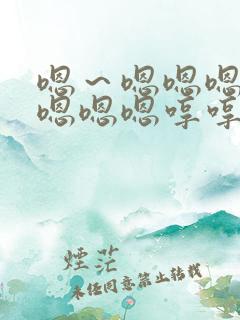 嗯～嗯嗯嗯
嗯嗯嗯哼哼
煙茫
未经同意禁止转载